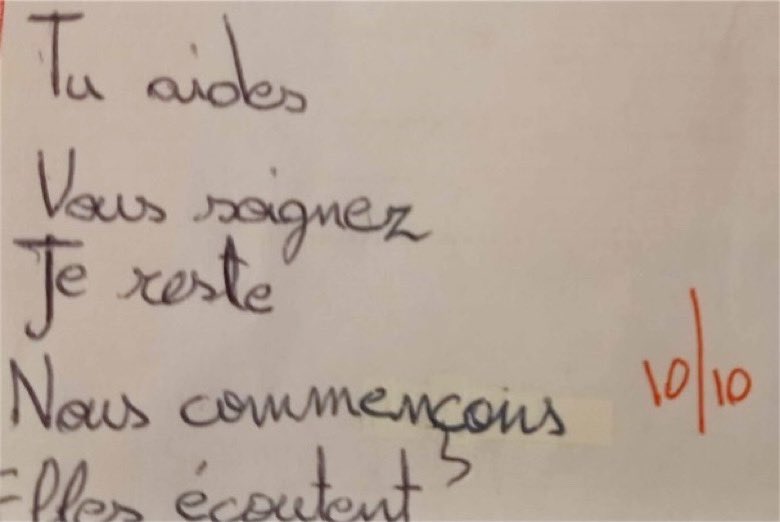 Tu aides
Vous soignez
Je reste
Nous commençons
10/10
Elles écoutent